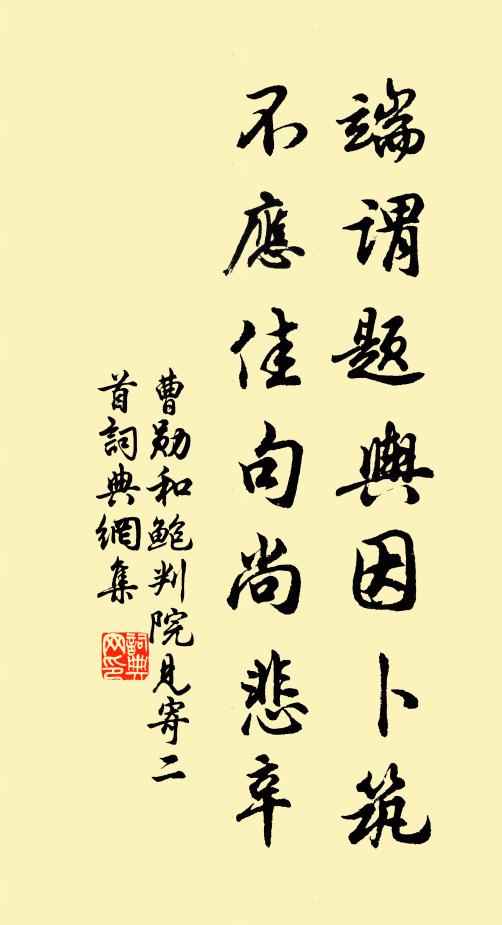 端谓题舆因卜筑
不應佳句尚悲辛
曹勋和鲍判院见寄二
首詞典網集
詞典网印